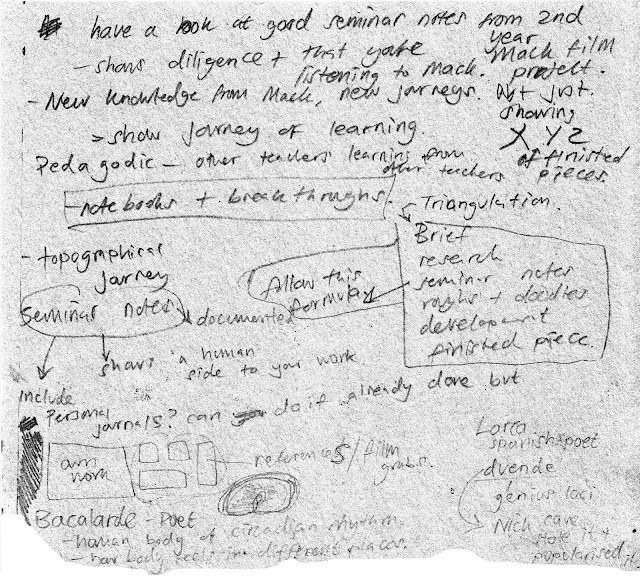 have a look at good seminar notes from 2nd year Mack film project.
- shows diligence + that you're listening to Mack.
- New knowledge from Mack, new journeys. Not just showing X Y Z of finisted pieces.
> show journey of learning.
Pedagodic - other teachers learning from other teachers
- notebooks + breakthroughs.
Triangulation.
Brief
research
seminar notes
roughs + doodles
development
finished piece.
allow this formula
- topographical journey
seminar notes
documented
shows a human side to your work
include personal journals? can do if already done but
own work
references/film grabs.
Lorca spanish poet
duende
genius loci
Nick cave stole it + popularised it
Bacalarde - Poet
- human body of circadian rhythm.
- how body feels in different places.